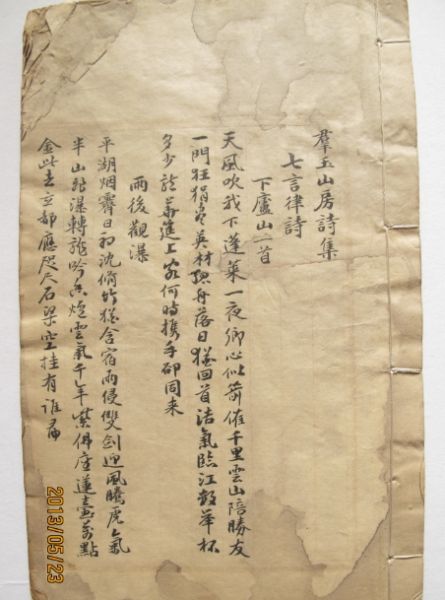 羣玉山房詩集
七言律詩
下廬山首
天風吹我下蓬萊一夜鄉心似箭催千里雲山陪勝友
一門狂狷英材舟落日猶回首浩氣臨江舉杯
多少龍華上客何時携手却同来
雨後觀瀑
平湖烟霽日初沈脩竹猶含宿雨侵雙劍迎風騰虎氣
半山飛瀑轉龍吟香爐雲氣千年紫佛座蓮萬點
金此去玄都應咫尺石梁空挂有誰尋
2013/05/23